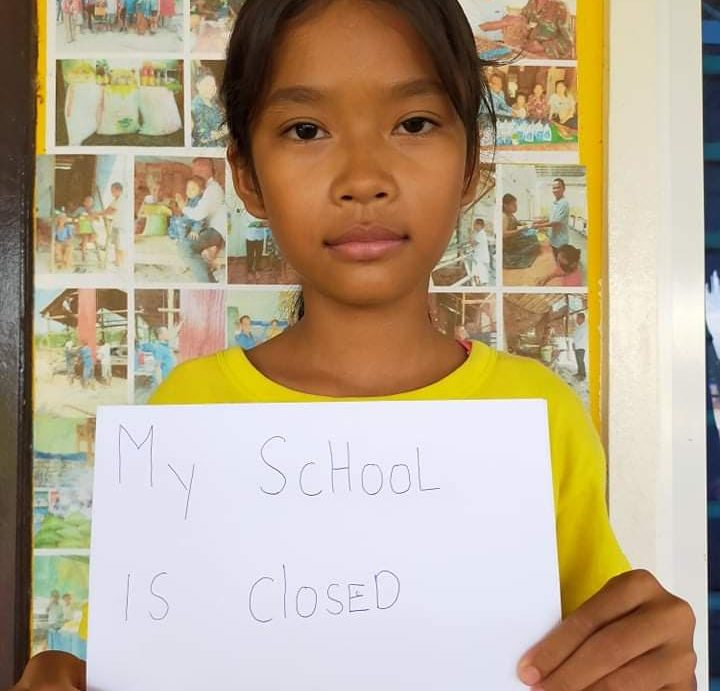 My ScHooL
IS ClosED